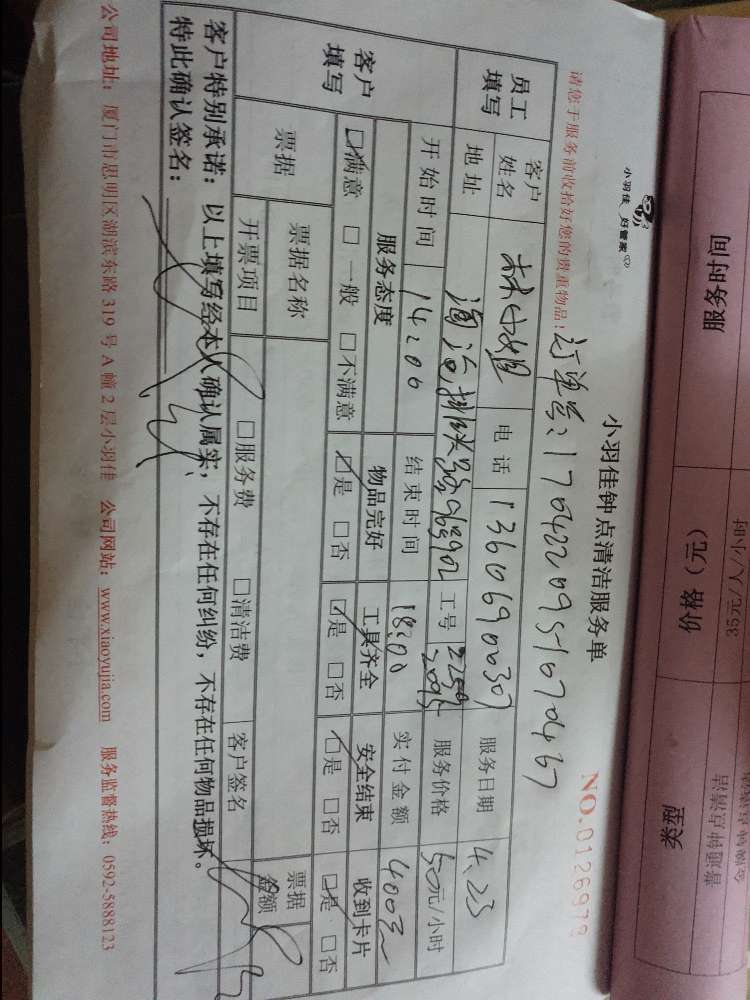 服务时间 价格（元） 类型
35元/人/小时 普通钟点清洁
小羽佳 好管家
小羽佳钟点清洁服务单
NO.0126979
请您于服务前收拾好您的贵重物品！
订单号：
员工填写 客户姓名 林小姐 电话 13606900307 服务日期 4.23
地址 工号 服务价格 50元/小时
客户填写 开始时间 14:00 结束时间 18:00 实付金额 400元
服务态度 物品完好 工具齐全 安全结束 收到卡片
☑满意 □一般 □不满意 ☑是 □否 ☑是 □否 ☑是 □否 ☑是 □否
票据 票据名称 票据金额
开票项目 □服务费 □清洁费 客户签名
客户特别承诺：以上填写经本人确认属实，不存在任何纠纷，不存在任何物品损坏。
特此确认签名：
公司地址：厦门市思明区湖滨东路 319 号 A 幢 2 层小羽佳 公司网站：www.xiaoyujia.com 服务监督热线：0592-5888123